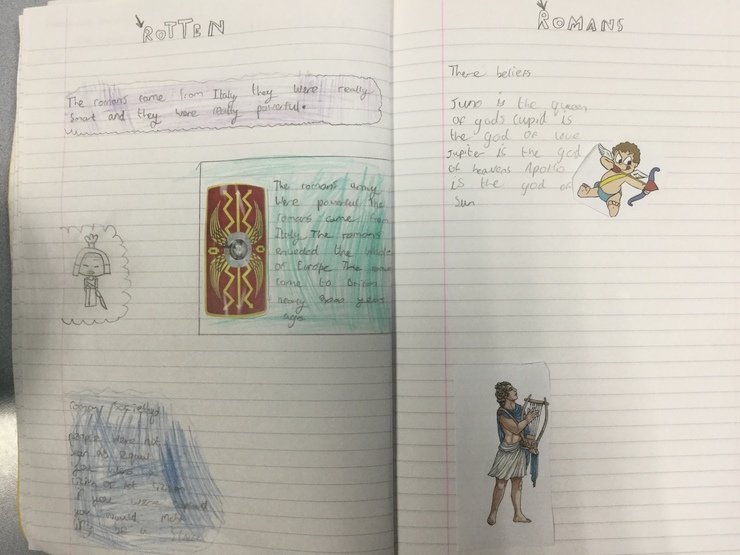 ROTTEN
The romans came from Italy they were really
smart and they were really powerful.
The romans army
were powerful the
romans came from
Italy The romans
envaded the whole
of Europe The
come to Britain
nearly years
ago
Roman society
people were not
seen as equal
you were a
citizen or not
if you were
you would most
be a slave
ROMANS
There beliefs
Juno is the queen
of gods cupid is
the god of love
Jupiter is the god
of heavens Apollo
is the god of
sun